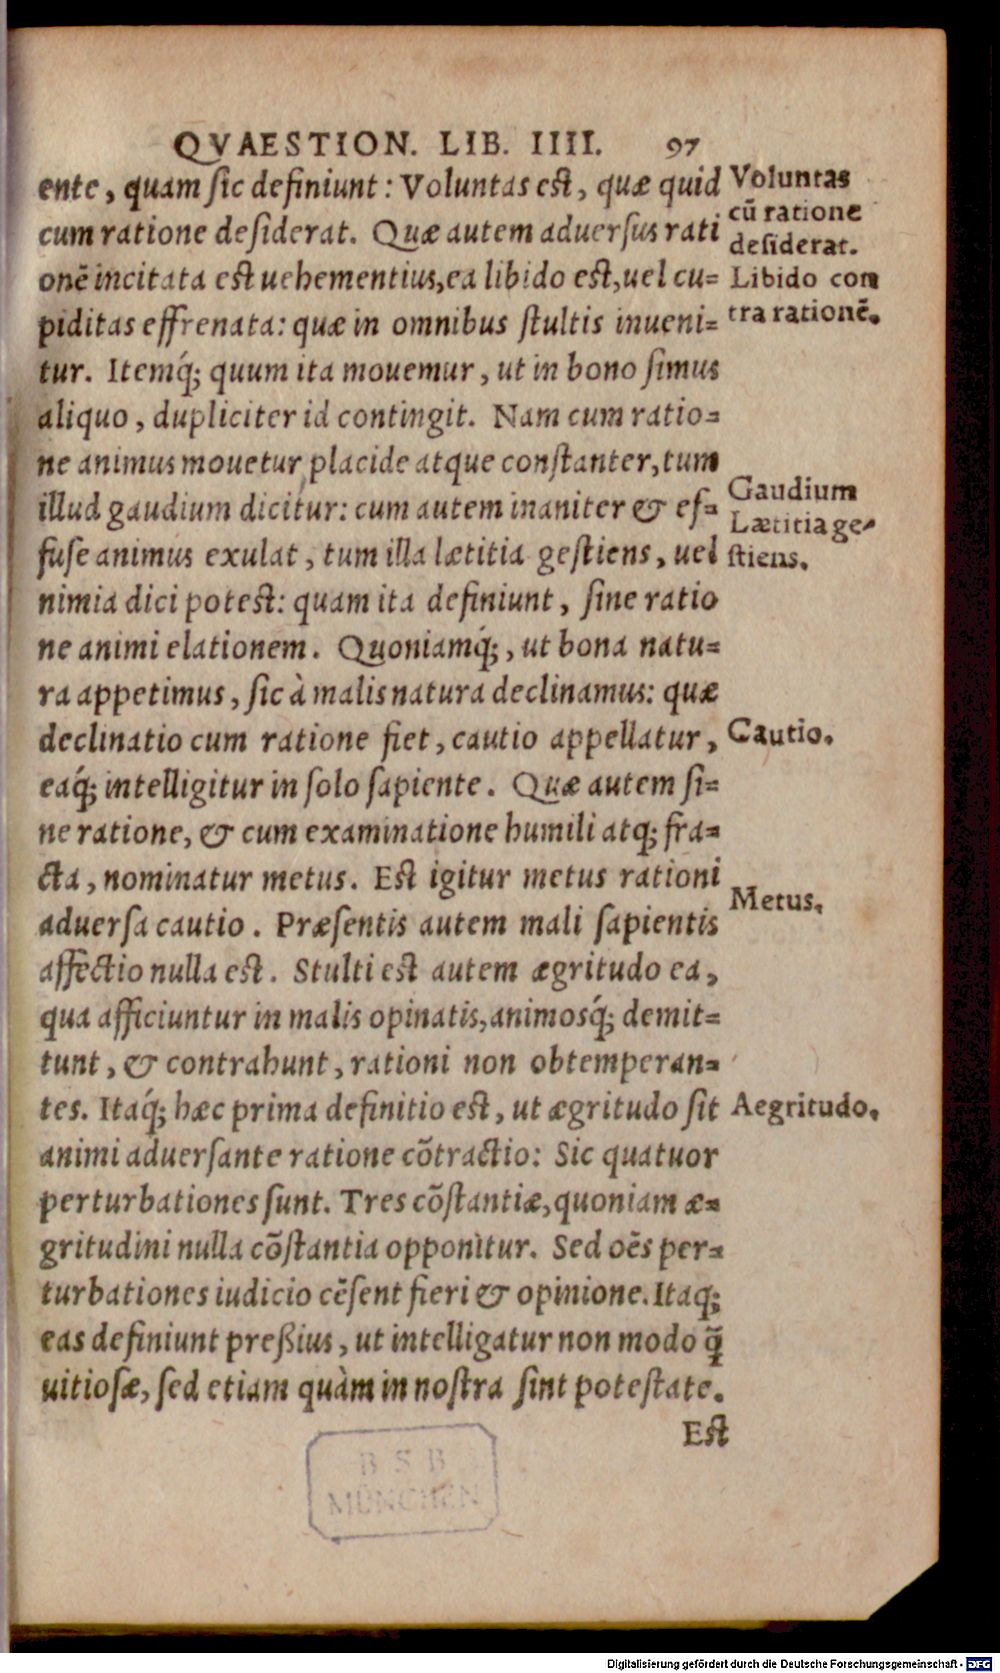 QVAESTION. LIB. IIII. 97
ente, quam sic definiunt: Voluntas est, quæ quid
cum ratione desiderat. Quæ autem aduersus rati
onē incitata est uehementius, ea libido est, uel cu=
piditas effrenata: quæ in omnibus stultis inueni=
tur. Itemq́; quum ita mouemur, ut in bono simus
aliquo, dupliciter id contingit. Nam cum ratio=
ne animus mouetur placide atque constanter, tum
illud gaudium dicitur: cum autem inaniter & ef=
fuse animus exulat, tum illa lætitia gestiens, uel
nimia dici potest: quam ita definiunt, sine ratio
ne animi elationem. Quoniamq́;, ut bona natu=
ra appetimus, sic à malis natura declinamus: quæ
declinatio cum ratione fiet, cautio appellatur,
eaq́; intelligitur in solo sapiente. Quæ autem si=
ne ratione, & cum examinatione humili atq; fra=
cta, nominatur metus. Est igitur metus rationi
aduersa cautio. Præsentis autem mali sapientis
affectio nulla est. Stulti est autem ægritudo ea,
qua afficiuntur in malis opinatis, animosq́; demit=
tunt, & contrahunt, rationi non obtemperan=
tes. Itaq́; hæc prima definitio est, ut ægritudo sit
animi aduersante ratione cōtractio: Sic quatuor
perturbationes sunt. Tres cōstantiæ, quoniam æ=
gritudini nulla cōstantia opponitur. Sed oēs per=
turbationes iudicio cēsent fieri & opinione. Itaq;
eas definiunt preßius, ut intelligatur non modo q̄
uitiosæ, sed etiam quàm in nostra sint potestate.
Est
Voluntas
cū ratione
desiderat.
Libido con
tra rationē.
Gaudium
Lætitia ge=
stiens.
Cautio.
Metus.
Aegritudo.
B S B
MÜNCHEN
Digitalisierung gefördert durch die Deutsche Forschungsgemeinschaft - DFG